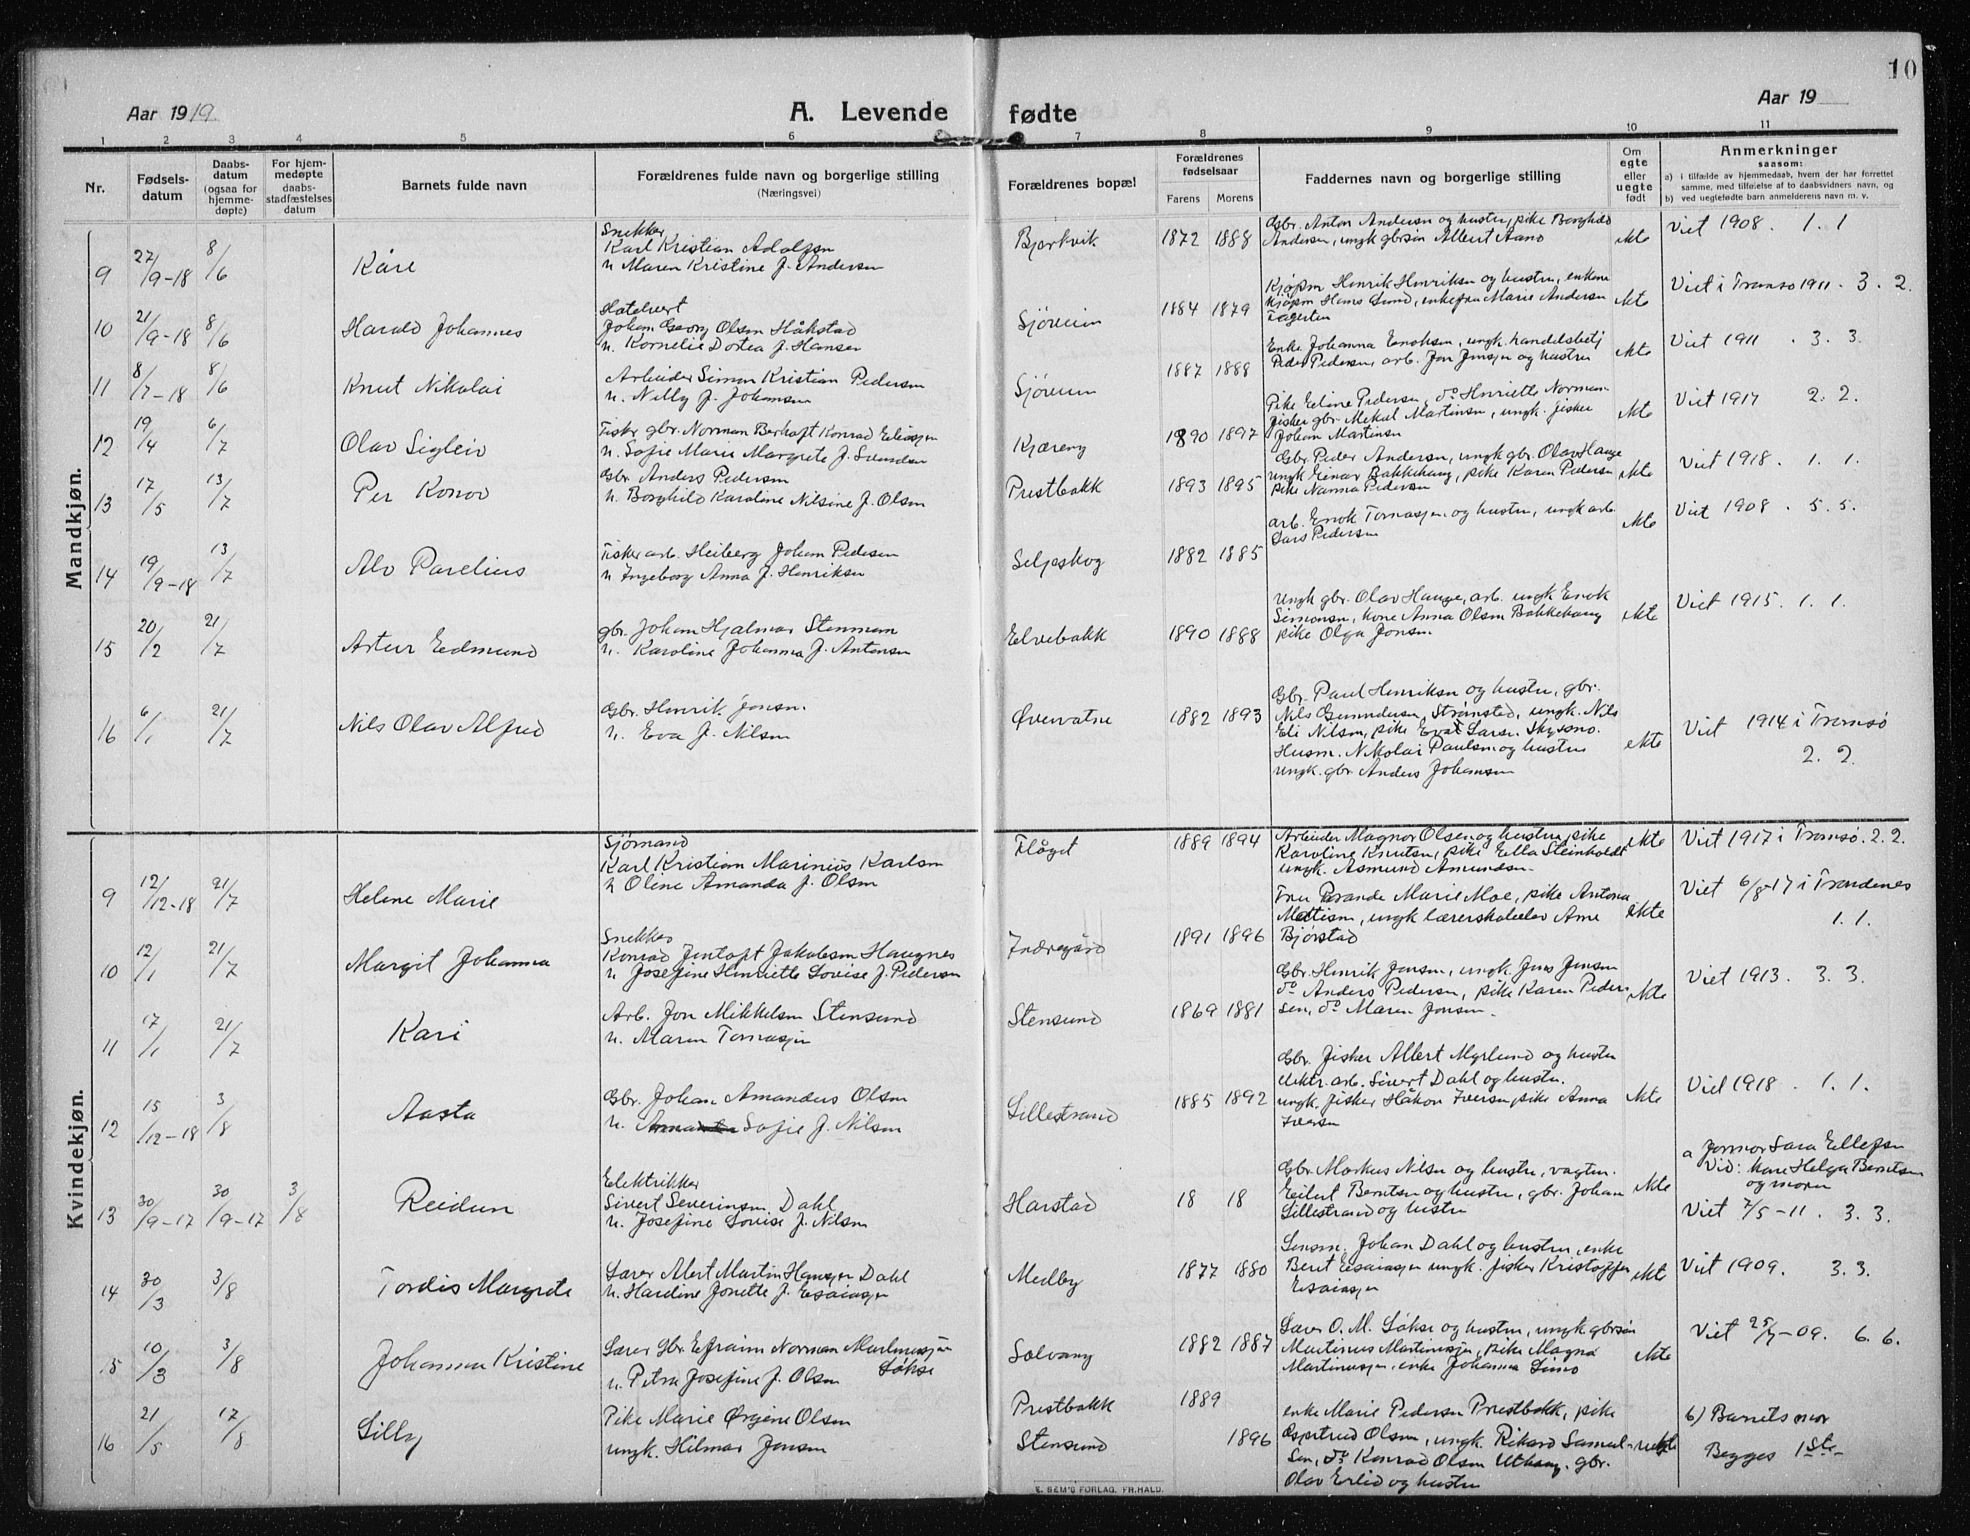 10
Aar 1919
A. Levende fødte
Aar 19
1 2 3 4 5 6 7 8 9 10 11
Nr.
Fødsels-
datum
Daabs-
datum
(ogsaa for
hjemme-
døpte)
For hjem-
medøpte
daabs-
stadfæstelses
datum
Barnets fulde navn
Forældrenes fulde navn og borgerlige stilling
(Næringsvei)
Forældrenes bopæl
Forældrenes
fødselsaar
Farens Morens
Faddernes navn og borgerlige stilling
Om
egte
eller
uegte
født
Anmerkninger
saasom:
a) i tilfælde av hjemmedaab, hvem der har forrettet
samme, med tilføielse af to daabsvidners navn, og
b) ved uegtefødte barn anmelderens navn m. v.
Mandkjøn.
9 27/9-18 8/6 Kåre
Snekker
Karl Kristian Adolfsen
u. Maren Kristine f. Andersen
Bjerkvik 1872 1888
Gbr. Anton Andersen og hustru, pike Borghild
Andersen, ungk gbrsøn Albert Aano
ekte
Viet 1908. 1. 1
10 21/9-18 8/6 Harald Johannes
Hotelvert
Johan Georg Olsen Håkstad
u. Kornelie Dortea f. Hansen
Sjøveien 1884 1879
Kjøpm Henrik Henriksen og hustru, enkene
kjøpm Hans Lund, enkefru Marie Andersen
Fagerten
ekte
Viet i Tromsø 1911. 3. 2.
11 8/7-18 8/6 Knut Nikolai
Arbeider Simon Kristian Pedersen
u. Nelly f. Johansen
Sjøveien 1887 1888
Enke Johanna Enoksen, ungk. handelsbetj
Peder Pedersen, arb. Jon Jensen og hustru
ekte
Viet 1911. 3. 3.
12 19/4 6/7 Olav Sigleiv
Fisker gbr. Norman Berhaft Konrad Eliassen
u. Sofie Marie Margrete f. Svendsen
Kjæreng 1890 1897
Pike Eline Pedersen, do Henriette Norman
fisker gbr. Mekal Martinsen, ungk. fisker
Johan Martinsen
ekte
Viet 1917 2. 2.
13 17/5 13/7 Per Konov
Gbr. Anders Pedersen
u. Borghild Karoline Nilsine f. Olsen
Prestbakk 1893 1895
Gbr. Peder Andersen, ungk gbr. Olav Hauge
ungk Einar Bakkehaug, pike Karen Pedersen
pike Nanna Pedersen
ekte
Viet 1918. 1. 1.
14 19/9-18 13/7 Alv Parelius
Fisker arb. Heiberg Johan Pedersen
u. Ingeborg Anna f. Henriksen
Seljeskog 1882 1885
arb. Enok Tomassen og hustru, ungk arb.
Lars Pedersen
ekte
Viet 1908. 5. 5.
15 20/2 21/7 Artur Edmund
gbr. Johan Hjalmar Stenman
u. Karoline Johanna f. Antonsen
Elvebakk 1890 1888
Ungk gbr. Olav Hauge, arb. ungk Enok
Simonsen, kone Anna Olsen Bakkehaug
pike Olga Jensen
ekte
Viet 1915. 1. 1.
16 6/1 21/7 Nils Olav Alfred
Gbr. Henrik Jonsen.
u. Eva f. Nilsen
Øvervatne 1882 1893
Gbr. Paul Henriksen og hustru, gbr.
Nils Gunndersen, Strømstad, ungk. Nils
Eli Nilsen, pike Eva Larsen Skysmo.
Husm. Nikolai Paulsen og hustru
ungk. gbr. Anders Johansen
ekte
Viet 1914 i Tromsø
2. 2.
Kvindekjøn.
9 12/12-18 21/7 Helene Marie
Sjømand
Karl Kristian Marinius Karlsen
u Oline Amanda f. Olsen
Flåget 1889 1894
Arbeider Magnor Olsen og hustru, pike
Karoline Knutsen, pike Ella Steinholdt
ungk. Asmund Amundsen.
ekte
Viet 1917 i Tromsø. 2. 2.
10 12/1 21/7 Margit Johanna
Snekker
Konrad Jentoft Jakobsen Haugnes
u. Josefine Henriette Lovise f. Pedersen
Indregård 1891 1896
Fru Prande Marie Moe, pike Antona
Mattisen, ungk lærerskoleelev Arne
Bjørstad
ekte
Viet 6/8-17 i Trondenes
1. 1.
11 17/1 21/7 Kari
Arb. Jon Mikkelsen Stensund
u. Maren Tomassen
Stensund 1869 1881
Gbr. Henrik Jensen, ungk. Jens Jensen
do Anders Pedersen, pike Karen Peder-
sen, do Maren Jonsen.
ekte
Viet 1913. 3. 3.
12 15/12-18 3/8 Aasta
Gbr. Johan Amandus Olsen
u. Sofie f. Nilsen
Lillestrand 1885 1892
Gbr. fisker Albert Myrlund og hustru
elektr. arb. Sivert Dahl og hustru.
ungk. fisker Håkon Iversen, pike Anna
Iversen
ekte
Viet 1918. 1. 1.
13 30/9-17 30/9-17 3/8 Reidun
Elektrikker
Sivert Severinsen Dahl
u. Josefine Lovise f. Nilsen
Harstad 18 18
Gbr. Markus Nilsen og hustru, vagtm.
Eilert Berntsen og hustru, gbr. Johan
Lillestrand og hustru
ekte
a Jormor Sara Ellefsen
Vid: kone Helga Berntsen
og moren
Viet 7/5-11. 3. 3.
14 30/3 3/8 Tordis Margrete
Lærer Albert Martin Hansen Dahl
u. Hardine Jonette f. Esaiassen
Medby 1877 1880
Lensm. Johan Dahl og hustru, enke
Berit Esaiassen ungk. fisker Kristoffer
Esaiassen
ekte
Viet 1909. 3. 3.
15 10/3 3/8 Johanna Kristine
Lærer Gbr. Efraim Norman Martinussen
Løkse
u. Petra Josefine f. Olsen
Solvang 1882 1887
Lærer O. M. Løkse og hustru, ungk gbrsøn
Martinus Martinussen, pike Magna
Martinussen, enke Johanna Simo
ekte
Viet 25/7-09. 6. 6.
16 21/5 17/8 Lilly
Pike Marie Ørgine Olsen
ungk. Hilmar Jensen
Prestbakk 1889
Stensund 1896
enke Marie Pedersen Prestbakk, pike
Gjertrud Olsen, ungk. Rikard Samuel-
sen, do Konrad Olsen Uthaug. gbr.
Olav Erlid og hustru
uekte
b) Barnets mor
Begges 1ste
E. SEM'S FORLAG, FR.HALD.